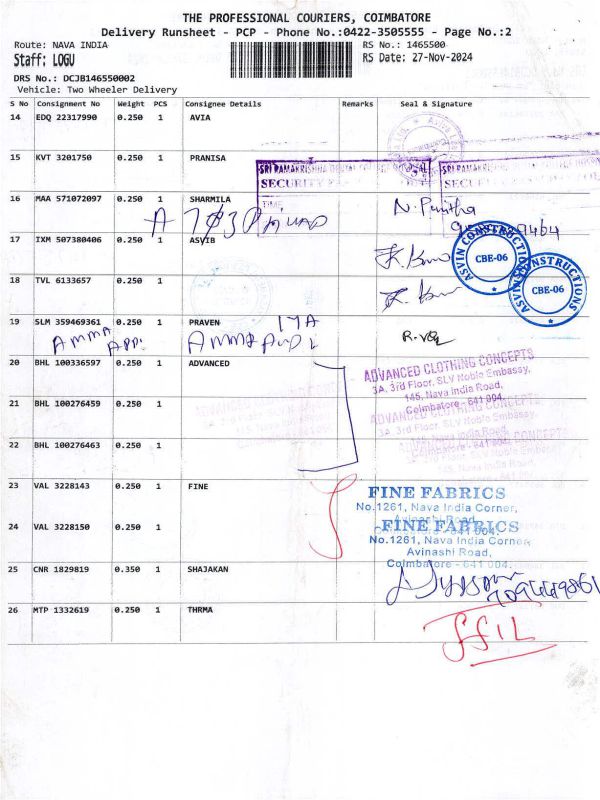 THE PROFESSIONAL COURIERS, COIMBATORE
Delivery Runsheet - PCP - Phone No.:0422-3505555 - Page No.:2
Route: NAVA INDIA RS No.: 1465500
Staff: LOGU RS Date: 27-Nov-2024
DRS No.: DCJB146550002
Vehicle: Two Wheeler Delivery
S No Consignment No Weight PCS Consignee Details Remarks Seal & Signature
14 EDQ 22317990 0.250 1 AVIA
15 KVT 3201750 0.250 1 PRANISA
SRI RAMAKRISHNA
SECURITY
TIME
16 MAA 571072097 0.250 1 SHARMILA N. Punitha
17 IXM 507380406 0.250 1 ASVIB
ASVIN CONSTRUCTIONS CBE-06
18 TVL 6133657 0.250 1
ASVIN CONSTRUCTIONS CBE-06
19 SLM 359469361 0.250 1 PRAVEN
AMMA
20 BHL 100336597 0.250 1 ADVANCED
ADVANCED CLOTHING CONCEPTS
3A, 3rd Floor, SLV Noble Embassy,
145, Nava India Road,
Coimbatore - 641 004.
21 BHL 100276459 0.250 1
ADVANCED CLOTHING CONCEPTS
3A, 3rd Floor, SLV Noble Embassy,
145, Nava India Road,
Coimbatore - 641 004.
22 BHL 100276463 0.250 1
23 VAL 3228143 0.250 1 FINE
FINE FABRICS
No.1261, Nava India Corner,
Avinashi Road,
Coimbatore - 641 004.
24 VAL 3228150 0.250 1
FINE FABRICS
No.1261, Nava India Corner,
Avinashi Road,
Coimbatore - 641 004.
25 CNR 1829819 0.350 1 SHAJAKAN
26 MTP 1332619 0.250 1 THRMA